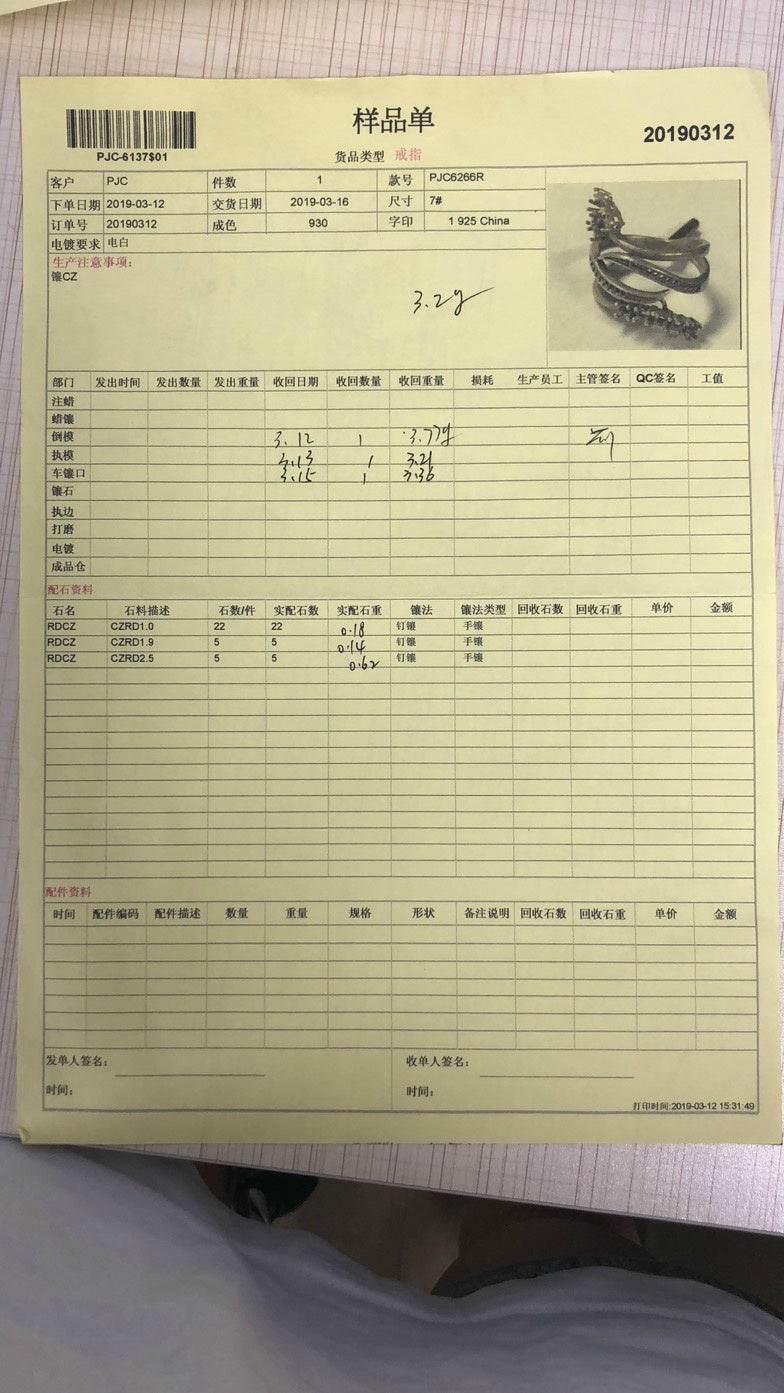 样品单
20190312
PJC-6137$01
货品类型 戒指
客户 PJC 件数 1 款号 PJC6266R
下单日期 2019-03-12 交货日期 2019-03-16 尺寸 7#
订单号 20190312 成色 930 字印 1 925 China
电镀要求 电白
生产注意事项:
镶CZ
3.2g
部门 发出时间 发出数量 发出重量 收回日期 收回数量 收回重量 损耗 生产员工 主管签名 QC签名 工值
注蜡
蜡镶
倒模 3.12 1 3.77g
执模 3.13 1 3.21
车镶口 3.15 1 3.36
镶石
执边
打磨
电镀
成品仓
配石资料
石名 石料描述 石数/件 实配石数 实配石重 镶法 镶法类型 回收石数 回收石重 单价 金额
RDCZ CZRD1.0 22 22 0.18 钉镶 手镶
RDCZ CZRD1.9 5 5 0.14 钉镶 手镶
RDCZ CZRD2.5 5 5 0.62 钉镶 手镶
配件资料
时间 配件编码 配件描述 数量 重量 规格 形状 备注说明 回收石数 回收石重 单价 金额
发单人签名: 收单人签名:
时间: 时间:
打印时间:2019-03-12 15:31:49